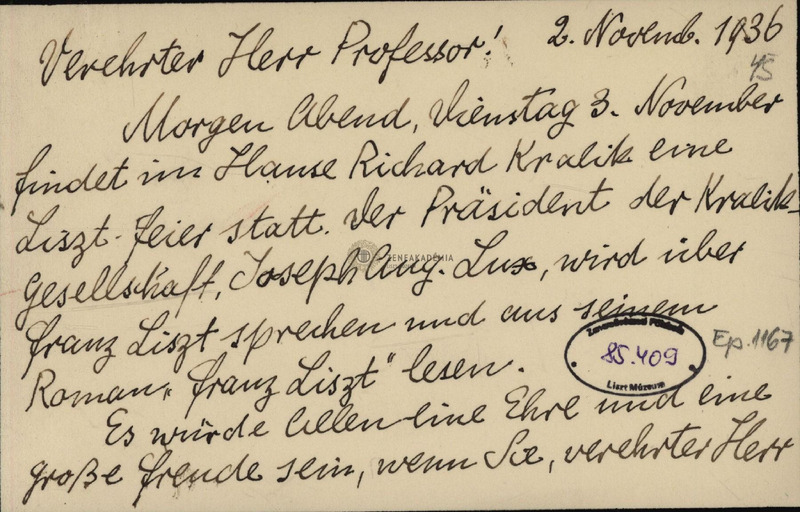 2. Novemb. 1936
45
Verehrter Herr Professor!
Morgen Abend, Dienstag 3. November
findet im Hause Richard Kralik eine
Liszt-Feier statt. Der Präsident der Kralik-
Gesellschaft, Joseph Aug. Lux, wird über
ZENEAKADÉMIA
Franz Liszt sprechen und aus seinem
Roman „Franz Liszt" lesen.
85.409
Liszt Múzeum
Ep. 1167
Es würde Allen eine Ehre und eine
große Freude sein, wenn Sie, verehrter Herr